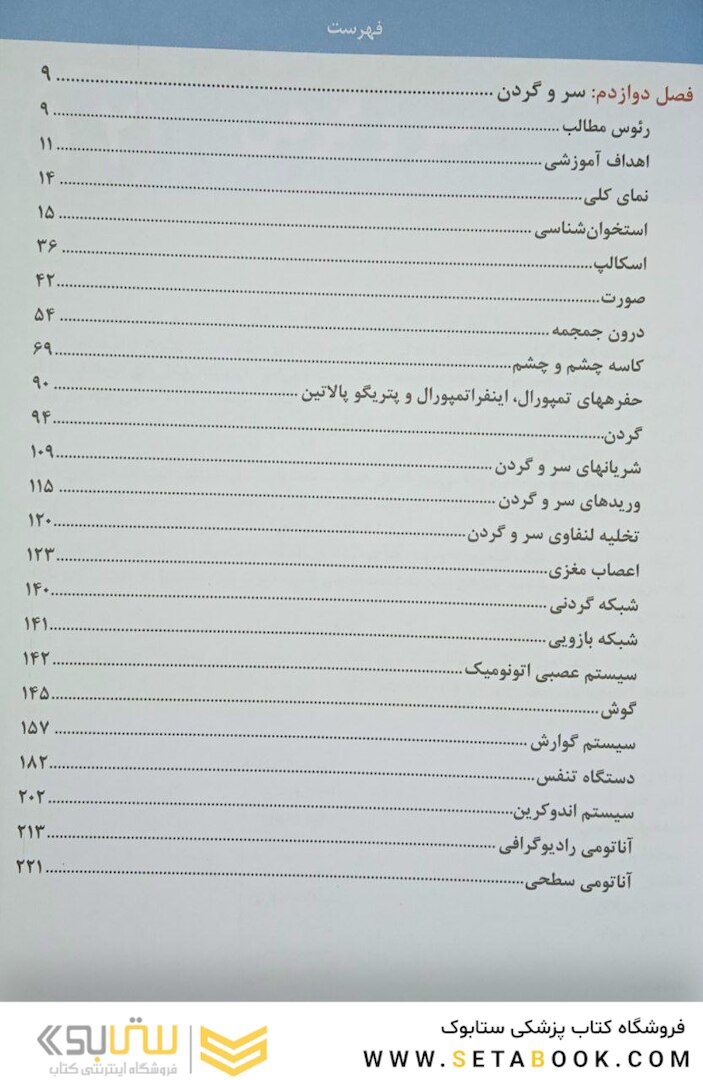 فهرست
فصل دوازدهم: سر و گردن ........ ۹
رئوس مطالب ........ ۹
اهداف آموزشی ........ ۱۱
نمای کلی ........ ۱۴
استخوان‌شناسی ........ ۱۵
اسکالپ ........ ۳۶
صورت ........ ۴۲
درون جمجمه ........ ۵۴
کاسه چشم و چشم ........ ۶۹
حفره‌های تمپورال، اینفراتمپورال و پتریگو پالاتین ........ ۹۰
گردن ........ ۹۴
شریانهای سر و گردن ........ ۱۰۹
وریدهای سر و گردن ........ ۱۱۵
تخلیه لنفاوی سر و گردن ........ ۱۲۰
اعصاب مغزی ........ ۱۲۳
شبکه گردنی ........ ۱۴۰
شبکه بازویی ........ ۱۴۱
سیستم عصبی اتونومیک ........ ۱۴۲
گوش ........ ۱۴۵
سیستم گوارش ........ ۱۵۷
دستگاه تنفس ........ ۱۸۲
سیستم اندوکرین ........ ۲۰۲
آناتومی رادیوگرافی ........ ۲۱۳
آناتومی سطحی ........ ۲۲۱
فروشگاه کتاب پزشکی ستابوک
WWW.SETABOOK.COM
ستابوک
فروشگاه اینترنتی کتاب